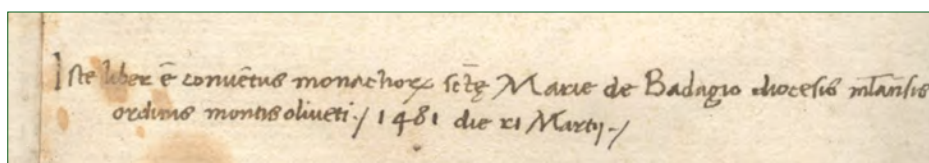 Iste liber ē conuētus monachoꝝ sctę Marie de Badagio diocesis mlan̄sis
ordinis montisoliueti ./ 1481 die xi Martij ./